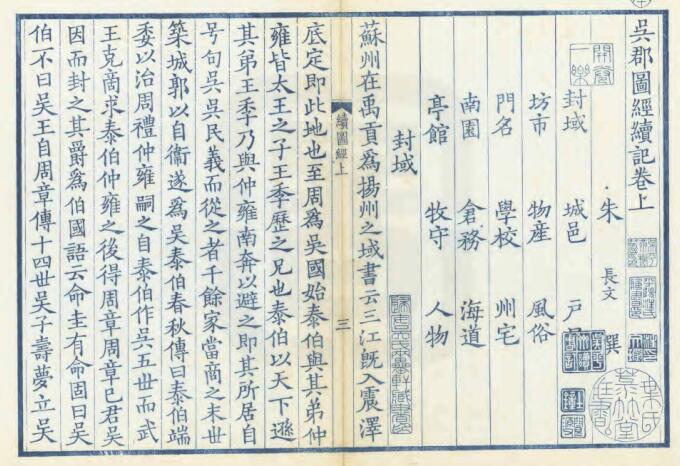 吳郡圖經續記卷上
朱 長文 撰
封域 城邑 戶
坊市 物産 風俗
門名 學校 州宅
南園 倉務 海道
亭館 牧守 人物
封域
蘇州在禹貢爲揚州之域書云三江旣入震澤
底定即此地也至周爲吳國始泰伯與其弟仲
雍皆太王之子王季歷之兄也泰伯以天下遜
其弟王季乃與仲雍南奔以避之即其所居自
号句吳吳民義而從之者千餘家當商之末世
築城郭以自衞遂爲吳泰伯春秋傳曰泰伯端
委以治周禮仲雍嗣之自泰伯作吳五世而武
王克商求泰伯仲雍之後得周章周章已君吳
因而封之其爵爲伯國語云命圭有命固曰吳
伯不曰吳王自周章傳十四世吳子壽夢立吳
續圖經上
三
開卷一樂